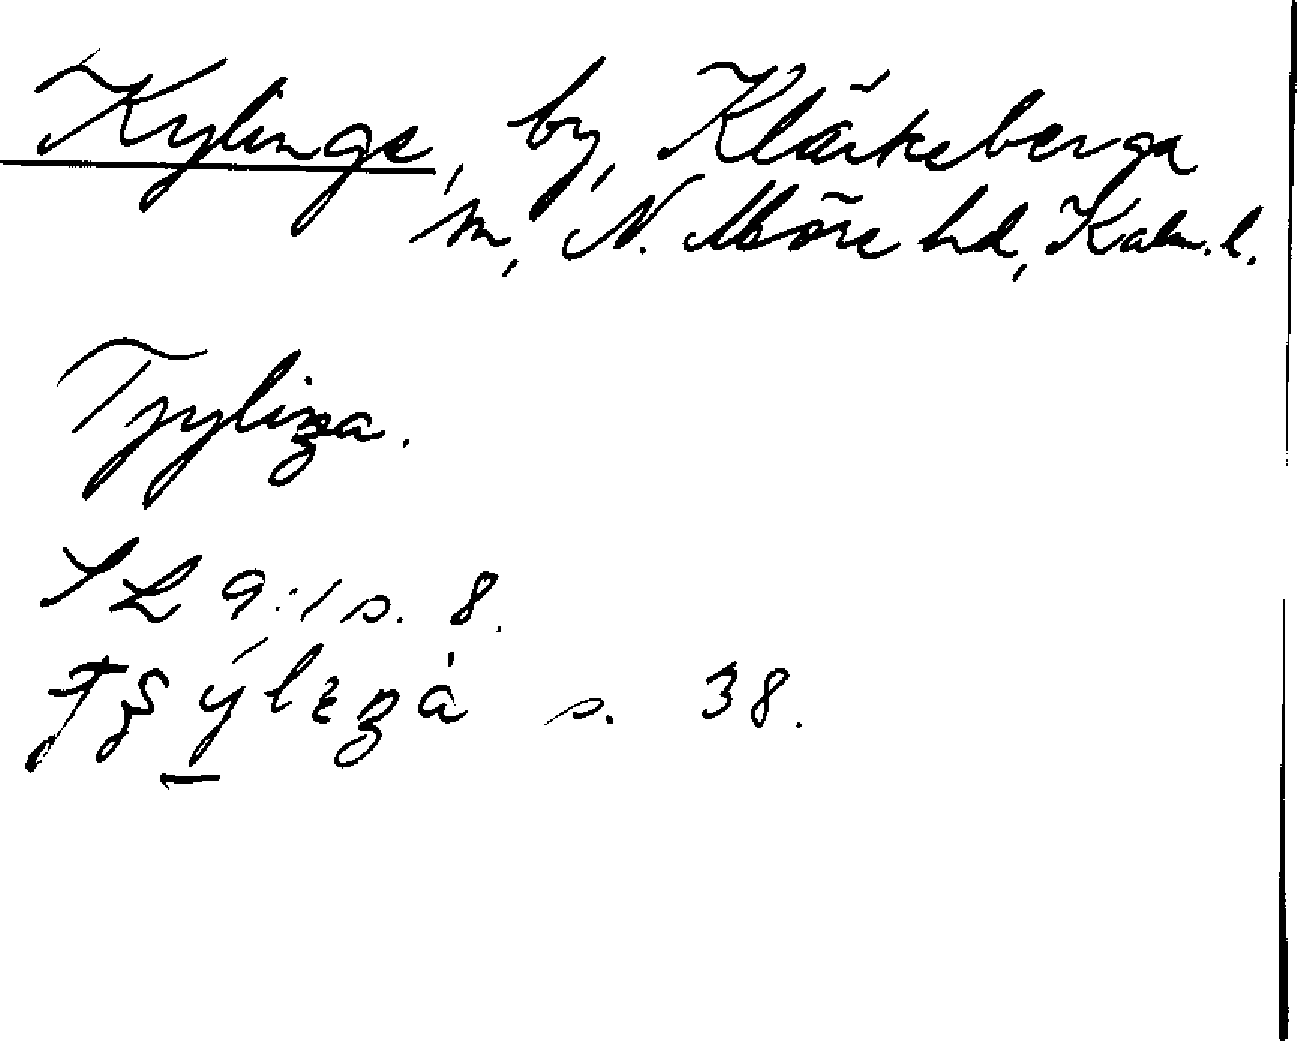 Kylinge, by, Kläckeberga
sn, N. Möre hd, Kalm. l.
Tjyliŋa.
SL 9:1 s. 8.
s. 38.